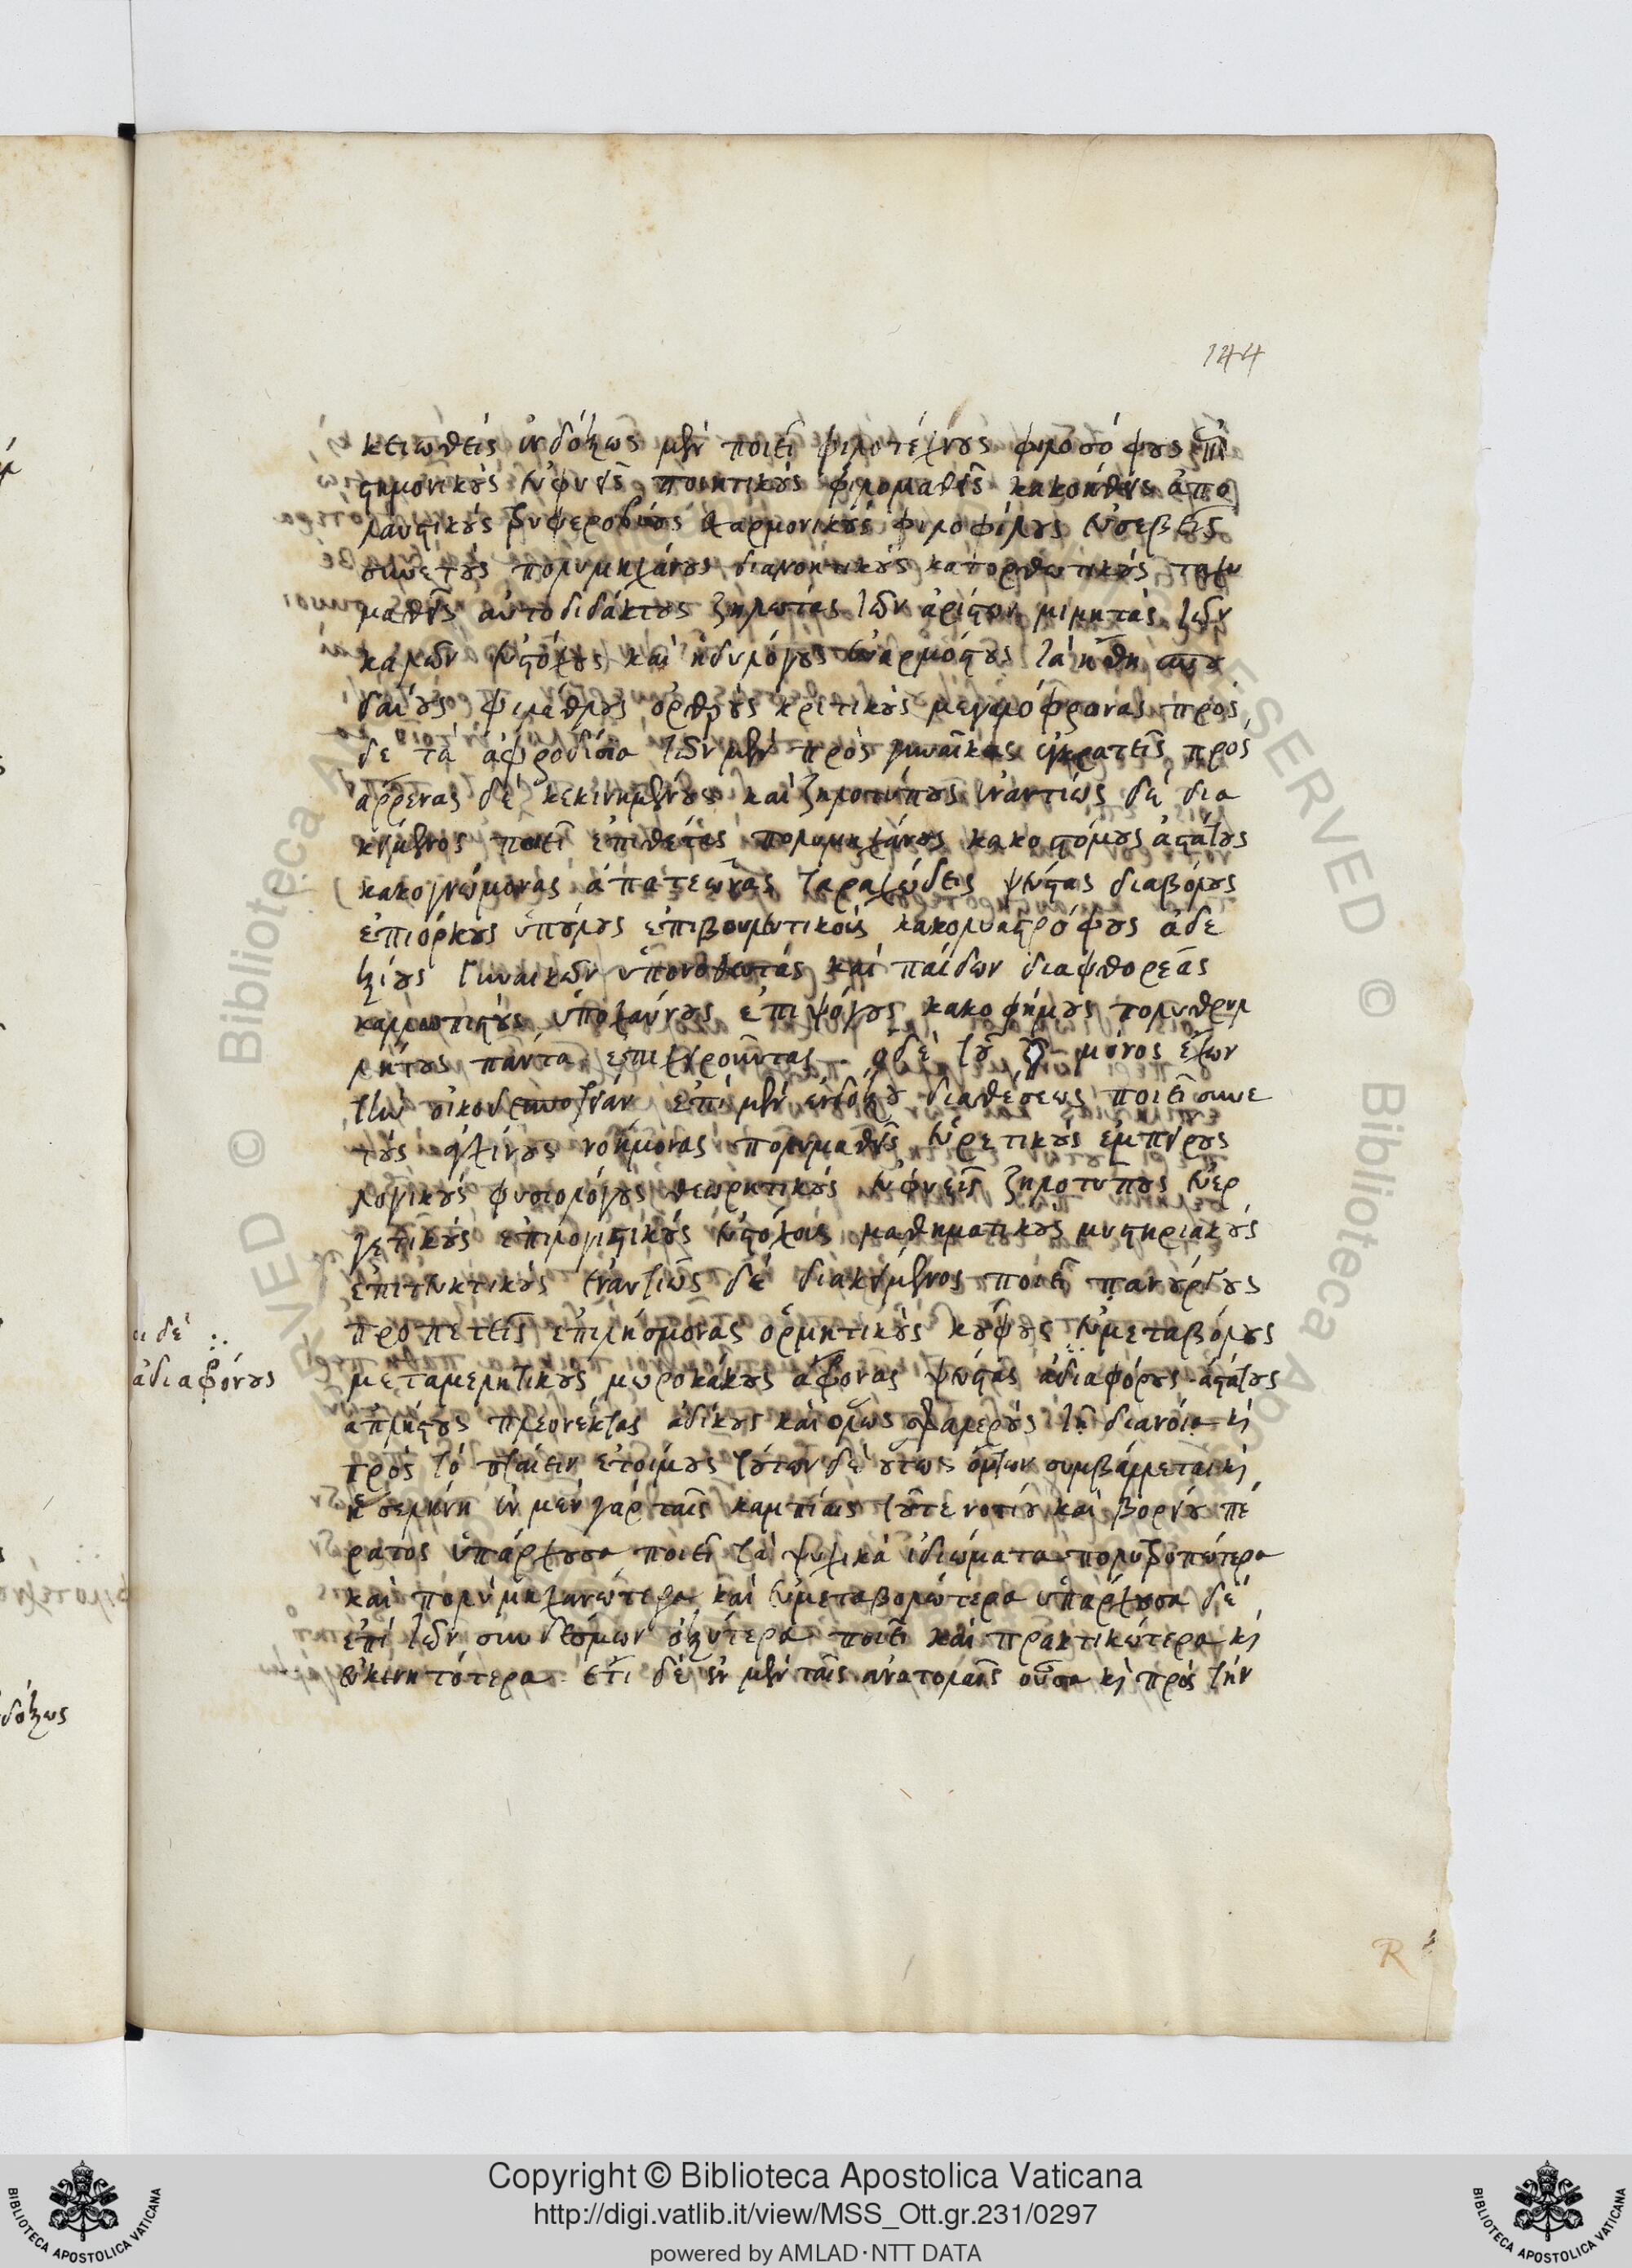 144
κειωθεὶς ἐνδόξως μὲν ποιεῖ φιλοτέχνους φιλοσόφους ἐπι
στημονικοὺς εὐφυεῖς ποιητικοὺς φιλομαθεῖς κακοήθεις ἀπο
λαυστικοὺς τρυφεροβίους ἁρμονικοὺς φιλοφίλους εὐσεβεῖς
συνετοὺς πολυμηχάνους διανοητικοὺς κατορθωτικοὺς ταχυ
μαθεῖς αὐτοδιδάκτους ζηλωτὰς τῶν ἀρίστων μιμητὰς τῶν
καλῶν εὐστόχους καὶ ἡδυλόγους εὐαρμόστους τὰ ἤθη σπου
δαίους φιλάθλους ὀρθοὺς κριτικοὺς μεγαλόφρονας πρὸς
δε τὰ ἀφροδίσια τῶν μὲν πρὸς γυναῖκας ἐγκρατεῖς πρὸς
ἄρρενας δὲ κεκινημένους καὶ ζηλοτύπους ἐναντίως δὲ δια
κείμενος ποιεῖ ἐπιθέτας πολυμηχάνους κακοστόμους ἀστάτους
κακογνώμονας ἀπατεῶνας ταραχώδεις ψεύστας διαβόλους
ἐπιόρκους ὑπούλους ἐπιβουλευτικοὺς κακοσυντρόφους ἀδε
ξίους γυναικῶν ὑπονοθευτὰς καὶ παίδων διαφθορέας
καλλωπιστὰς ὑποχαύνους ἐπιψόγους κακοφήμους πολυθρυλ
λήτους πάντα ἐπιχειροῦντας. ὁ δὲ τοῦ ☿ μόνος ἔχων
τὴν οἰκοδεσποτείαν ἐπὶ μὲν ἐνδόξου διαθέσεως ποιεῖ συνε
τοὺς ἀγχίνους νοήμονας πολυμαθεῖς εὑρετικοὺς ἐμπείρους
λογικοὺς φυσιολόγους θεωρητικοὺς εὐφυεῖς ζηλοτύπους εὐερ
γετικοὺς ἐπιλογιστικοὺς εὐστόχους μαθηματικοὺς μυστηριακοὺς
ἐπιτευκτικοὺς ἐναντίως δὲ διακείμενος ποιεῖ πανούργους
προπετεῖς ἐπιλήσμονας ὁρμητικοὺς κούφους εὐμεταβόλους
μεταμελητικοὺς μωροκάκους ἄφρονας ψεύστας ἀδιαφόρους ἀστάτους
ἀπλήστους πλεονέκτας ἀδίκους καὶ ὅλως σφαλεροὺς τῇ διανοίᾳ καὶ
πρὸς τὸ πταίειν ἑτοίμους τούτων δὲ οὕτως ὄντων συμβάλλεται καὶ
ἡ σελήνη ἐν μὲν γὰρ ταῖς καμπίαις τοῦ τε νοτίου καὶ βορείου πέ
ρατος ὑπάρχουσα ποιεῖ τὰ ψυχικὰ ἰδιώματα πολυτροπώτερα
καὶ πολυμηχανώτερα καὶ εὐμεταβολώτερα ὑπάρχουσα δὲ
ἐπὶ τῶν συνδέσμων ὀξύτερα ποιεῖ καὶ πρακτικώτερα καὶ
εὐκινητότερα. ἔτι δὲ ἐν μὲν ταῖς ἀνατολαῖς οὖσα καὶ πρὸς τὴν
ἀδιαφόνους
δόξως
R
Copyright © Biblioteca Apostolica Vaticana
http://digi.vatlib.it/view/MSS_Ott.gr.231/0297
powered by AMLAD·NTT DATA
BIBLIOTECA APOSTOLICA VATICANA
BIBLIOTECA APOSTOLICA VATICANA